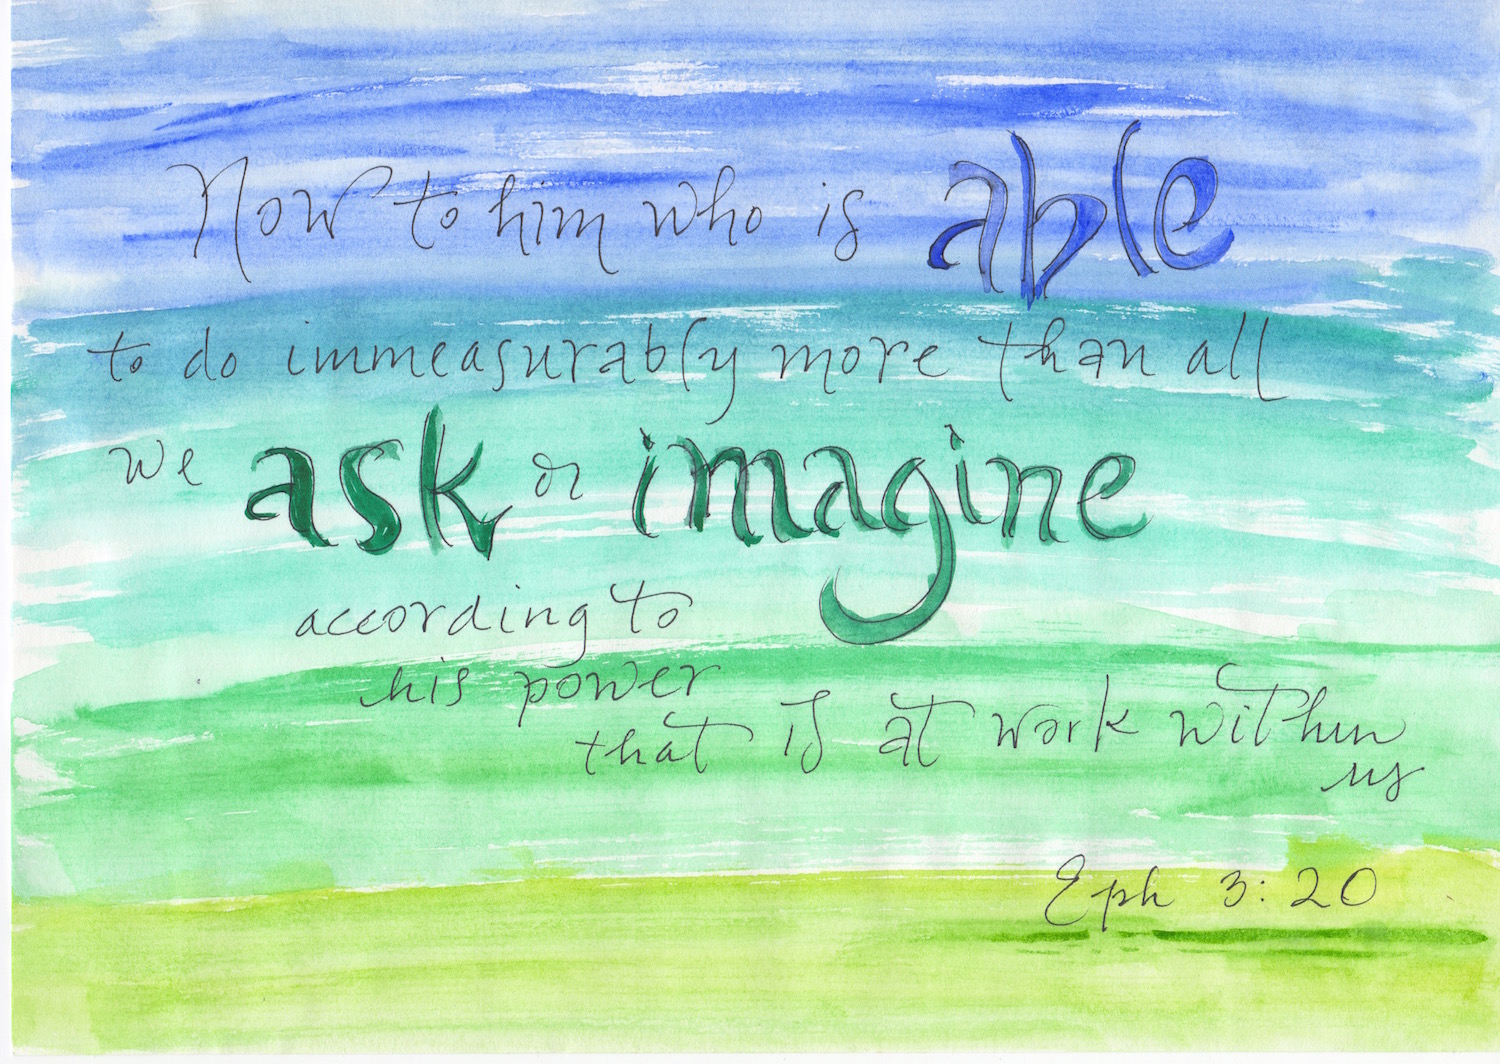 Now to him who is able
to do immeasurably more than all
we ask or imagine
according to
his power
that is at work within
us
Eph 3:20